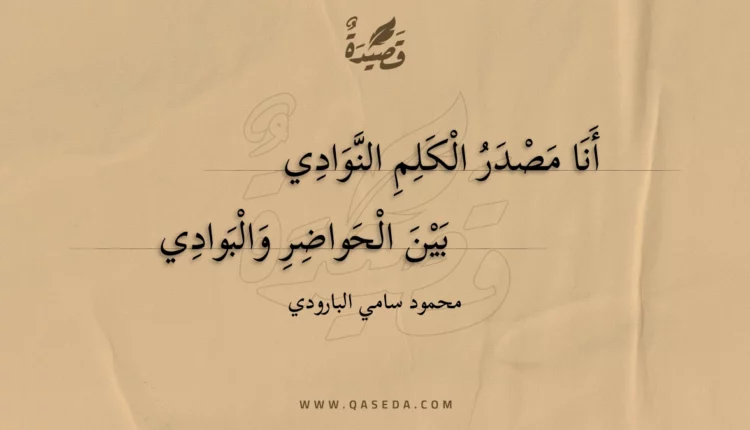 قَصِيدَةٌ
أَنَا مَصْدَرُ الْكَلِمِ النَّوَادِي
بَيْنَ الْحَواضِرِ وَالْبَوادِي
محمود سامي البارودي
WWW.QASEDA.COM